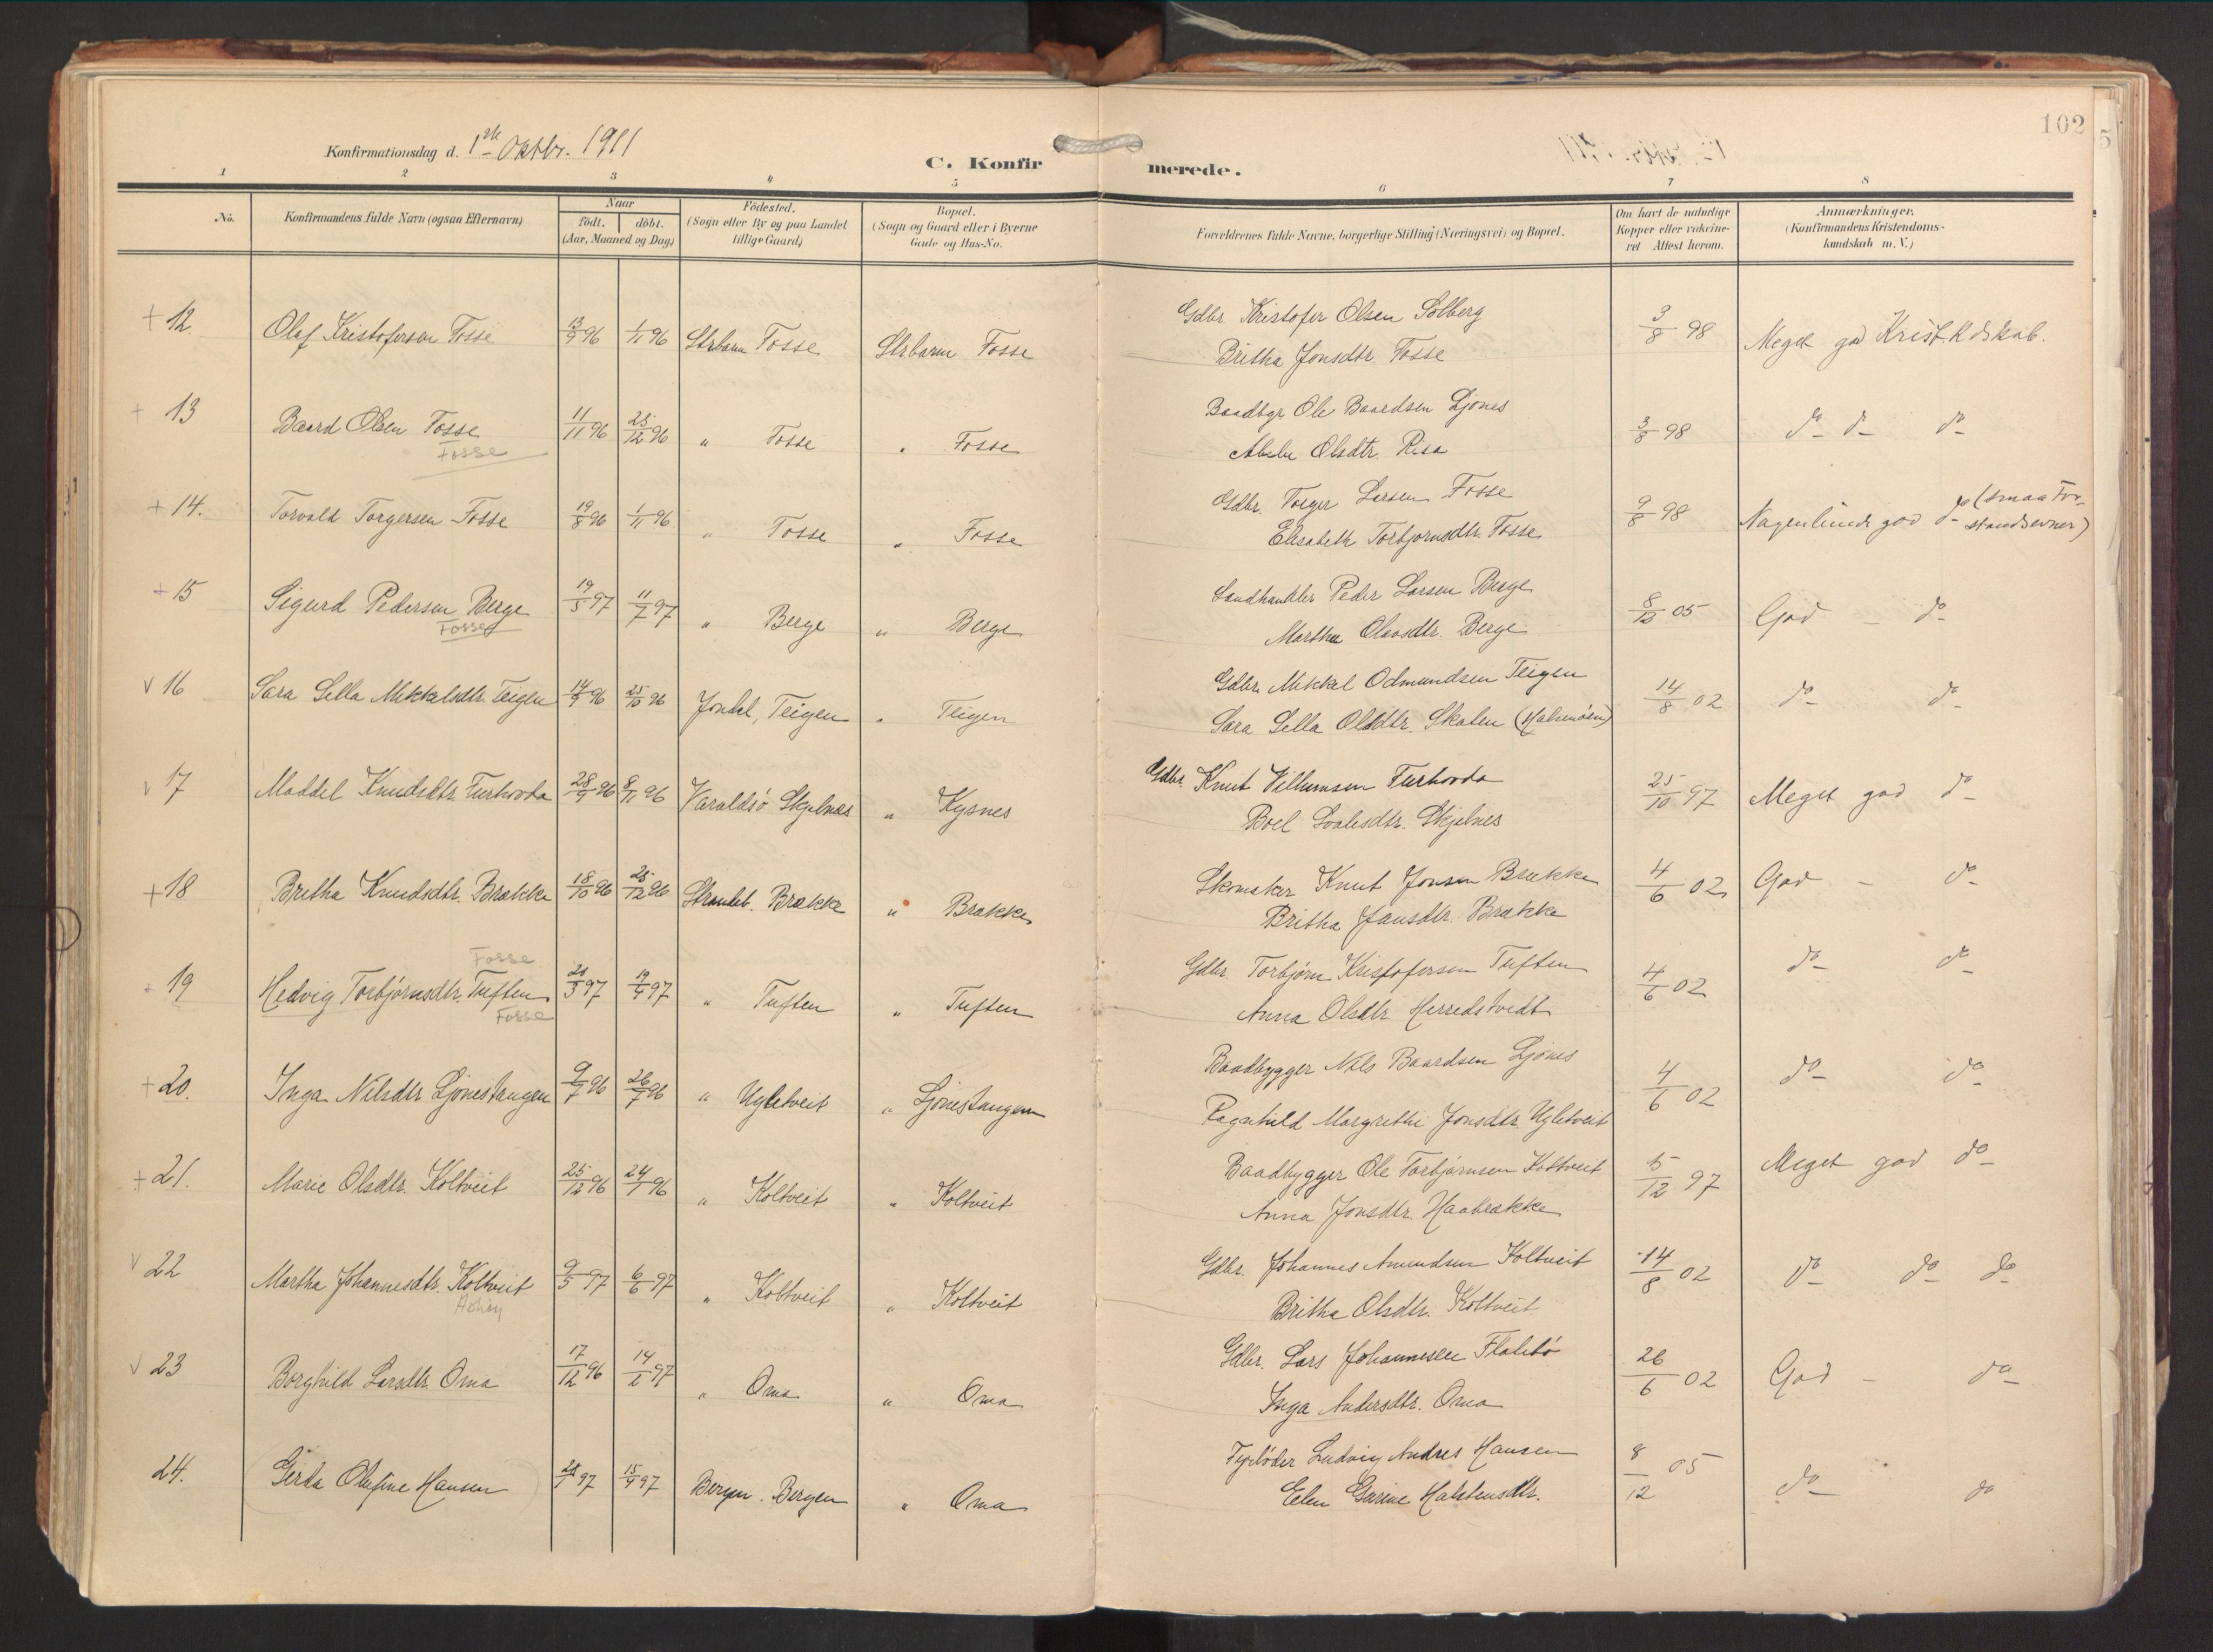 102
5
Konfirmationsdag d. 1ste Oktbr. 1911
C. Konfirmerede.
1 2 3 4 5 6 7 8
No.
Konfirmandens fulde Navn (ogsaa Efternavn)
Naar
födt. döbt.
(Aar, Maaned og Dag)
Födested.
(Sogn eller By og paa Landet
tillige Gaard)
Bopæl.
(Sogn og Gaard eller i Byerne
Gade og Hus-No.
Forældrenes fulde Navne, borgerlige Stilling (Næringsvei) og Bopæl.
Om havt de naturlige
Kopper eller vakcine-
ret Attest herom.
Anmærkninger.
(Konfirmandens Kristendoms-
kundskab m. V.)
+ 12. Olaf Kristofersen Fosse 13/9 96 1/11 96 Strbarm Fosse Strbarm Fosse
Gdbr. Kristofer Olsen Solberg
Britha Jonsdtr. Fosse
3/8 98 Meget god Krist.kdskab.
+ 13 Baard Olsen Fosse 11/11 96 25/12 96 " Fosse " Fosse
Fosse
Baadbgr. Ole Baardsen Ljones
Olsdtr. Risa
3/8 98 do do do
+ 14. Torvald Torgersen Fosse 19/8 96 1/11 96 " Fosse " Fosse
Gdbr. Torger Larsen Fosse
Elisabeth Torbjornsdtr. Fosse
9/8 98 Nogenlunde god do (smaa For-
standsevner)
+ 15 Sigurd Pedersen Berge 19/5 97 11/7 97 " Berge " Berge
Fosse
Landhandler Peder Larsen Berge
Martha Olavsdtr. Berge
8/12 05 God - do
v 16 Sara Sella Mikkalsdtr. Teigen 14/9 96 25/10 96 Jondal, Teigen " Teigen
Gdbr. Mikkel Odmundsen Teigen
Sara Sella Olsdtr. Skalen
14/8 02 do do
v 17 Maddel Knudsdtr. Furhovda 28/9 96 8/11 96 Varaldsö Skjelnæs " Kysnes
Gdbr. Knut Villumsen Furhovda
Boel Skjelnes
25/10 97 Meget god do
+ 18 Britha Knudsdtr. Brække 18/10 96 25/12 96 Strandeb. Brække " Brække
Skomaker Knut Jonsen Brække
Britha Jansdtr. Brække
4/6 02 God - do
Fosse
19 Hedvig Torbjörnsdtr. Tuften 21/3 97 19/4 97 " Tuften " Tuften
Fosse
Gdbr. Torbjörn Kristofersen Tuften
Anna Olsdtr. Herredstvedt
4/6 02 do do
+ 20. Inga Nilsdtr Ljonestangen 9/7 96 26/7 96 " Ugletveit " Ljonestangen
Baadbygger Nils Baardsen Ljones
Ragnhild Margrethe Jonsdtr. Ugletveit
4/6 02 do do
+ 21. Marie Olsdtr. Koltveit 25/12 96 24/1 96 " Koltveit " Koltveit
Baadbygger Ole Torbjörnsen Koltveit
Anna Jonsdtr. Haabrække
15/12 97 Meget god do
v 22 Martha Johannesdtr. Koltveit 9/5 97 6/6 97 " Koltveit " Koltveit
Gdbr. Johannes Amundsen Koltveit
Britha Olsdtr. Koltveit
14/8 02 do do do
v 23 Borghild Larsdtr. Oma 17/12 96 14/2 97 " Oma " Oma
Gdbr. Lars Johannesen Flatebö
Inga Andersdtr. Oma
26/6 02 God - do
24. Gerda Olufine Hansen 28/1 97 15/4 97 Bergen. Bergen " Oma
Fyrböder Ludvig Andres Hansen
Elen Gurine Halstensdtr.
8/12 05 do do